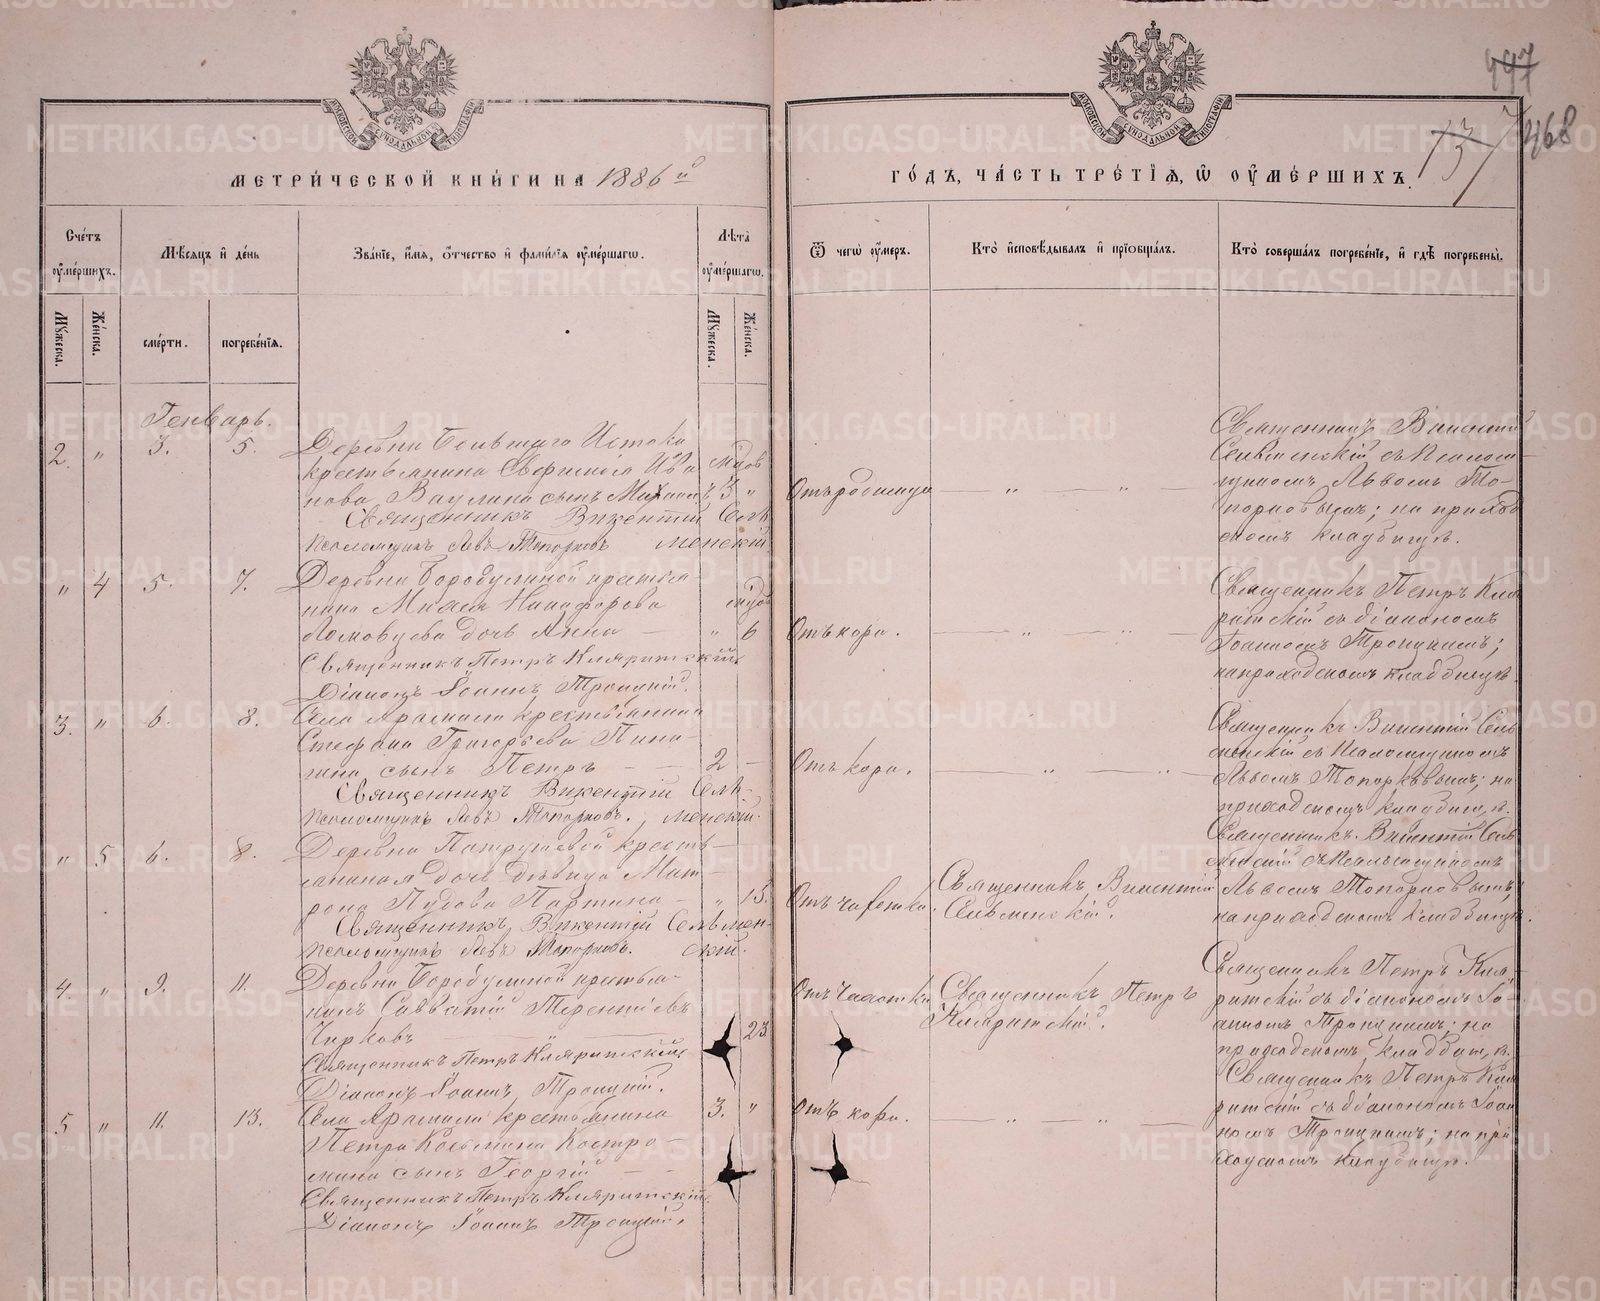 МЕТРИ́ЧЕСКОЙ КНИ́ГИ НА 1886й
ГО́ДЪ, ЧА́СТЬ ТРЕ́ТІѦ, Ѡ ОУ҆МЕ́РШИХЪ.
447
137
468
Сче́тъ оу҆ме́ршихъ.
Мꙋ́жеска.
Же́нска.
Мѣ́сѧцъ и҆ де́нь
сме́рти.
погребе́нїѧ.
Зва́нїе, и҆́мѧ, ѻ҆́тчество и҆ фами́лїѧ оу҆ме́ршагѡ.
Лѣ́та оу҆ме́ршагѡ.
Мꙋ́жеска.
Же́нска.
Ѿ чегѡ̀ оу҆́меръ.
Кто̀ и҆сповѣ́дывалъ и҆ прїѡбща́лъ.
Кто̀ соверша́лъ погребе́нїе, и҆ гдѣ̀ погребены̀.
Генварь.
2. " 3. 5.
Деревни Большаго Истока
крестьянина Ива
нова Ваулина сынъ Михаилъ 3 "
Священникъ Викентій Сель
Псаломщикъ Левъ Топорковъ менскій
Отъ родимца
Священникъ Викентій
Сельменскій съ Псалом
щикомъ Львомъ То-
порковымъ; на приход
скомъ кладбищѣ.
" 4 5. 7.
Деревни Бородулиной крестья-
нина Никифорова
дочь Анна — " 6
Священникъ Петръ Кляритскій
Діаконъ Іоаннъ Троицкій.
Отъ кори.
Священникъ Петръ Кля
ритскій съ діакономъ
Іоанномъ Троицкимъ;
на приходскомъ кладбищѣ.
3. " 6. 8.
Села Арамили крестьянина
Стефана Григорьева Пина-
гина сынъ Петръ — 2 —
Священникъ Викентій Сель-
Псаломщикъ Левъ Топорковъ. менскій.
Отъ кори.
Священникъ Викентій Сель
менскій съ Псаломщикомъ
Львомъ Топорковымъ; на
приходскомъ кладбищѣ.
" 5 6. 8.
Деревни Патрушевой кресть-
янская дочь дѣвица Мат-
рона Пудова Партина — " 15.
Священникъ Викентій Сельмен-
Псаломщикъ Левъ Топорковъ. скій.
Отъ чахотки.
Священникъ Викентій
Сельменскій.
Священникъ Викентій Сель
менскій съ Псаломщикомъ
Львомъ Топорковымъ;
на приходскомъ кладбищѣ.
4. " 9. 11.
Деревни Бородулиной крестья-
нинъ Савватій Терентіевъ
Чирковъ 23
Священникъ Петръ Кляритскій
Діаконъ Іоаннъ Троицкій.
Отъ чахотки
Священникъ Петръ
Кляритскій.
Священникъ Петръ Кля-
ритскій съ діакономъ Іо-
анномъ Троицкимъ; на
приходскомъ кладбищѣ.
5 " 11. 13.
Села Арамили крестьянина 3. "
Петра Козьмина Костро-
мина сынъ Георгій
Священникъ Петръ Кляритскій
Діаконъ Іоаннъ Троицкій.
Отъ кори.
Священникъ Петръ Кля
ритскій съ діакономъ Іоан
номъ Троицкимъ; на при
ходскомъ кладбищѣ.
METRIKI.GASO-URAL.RU